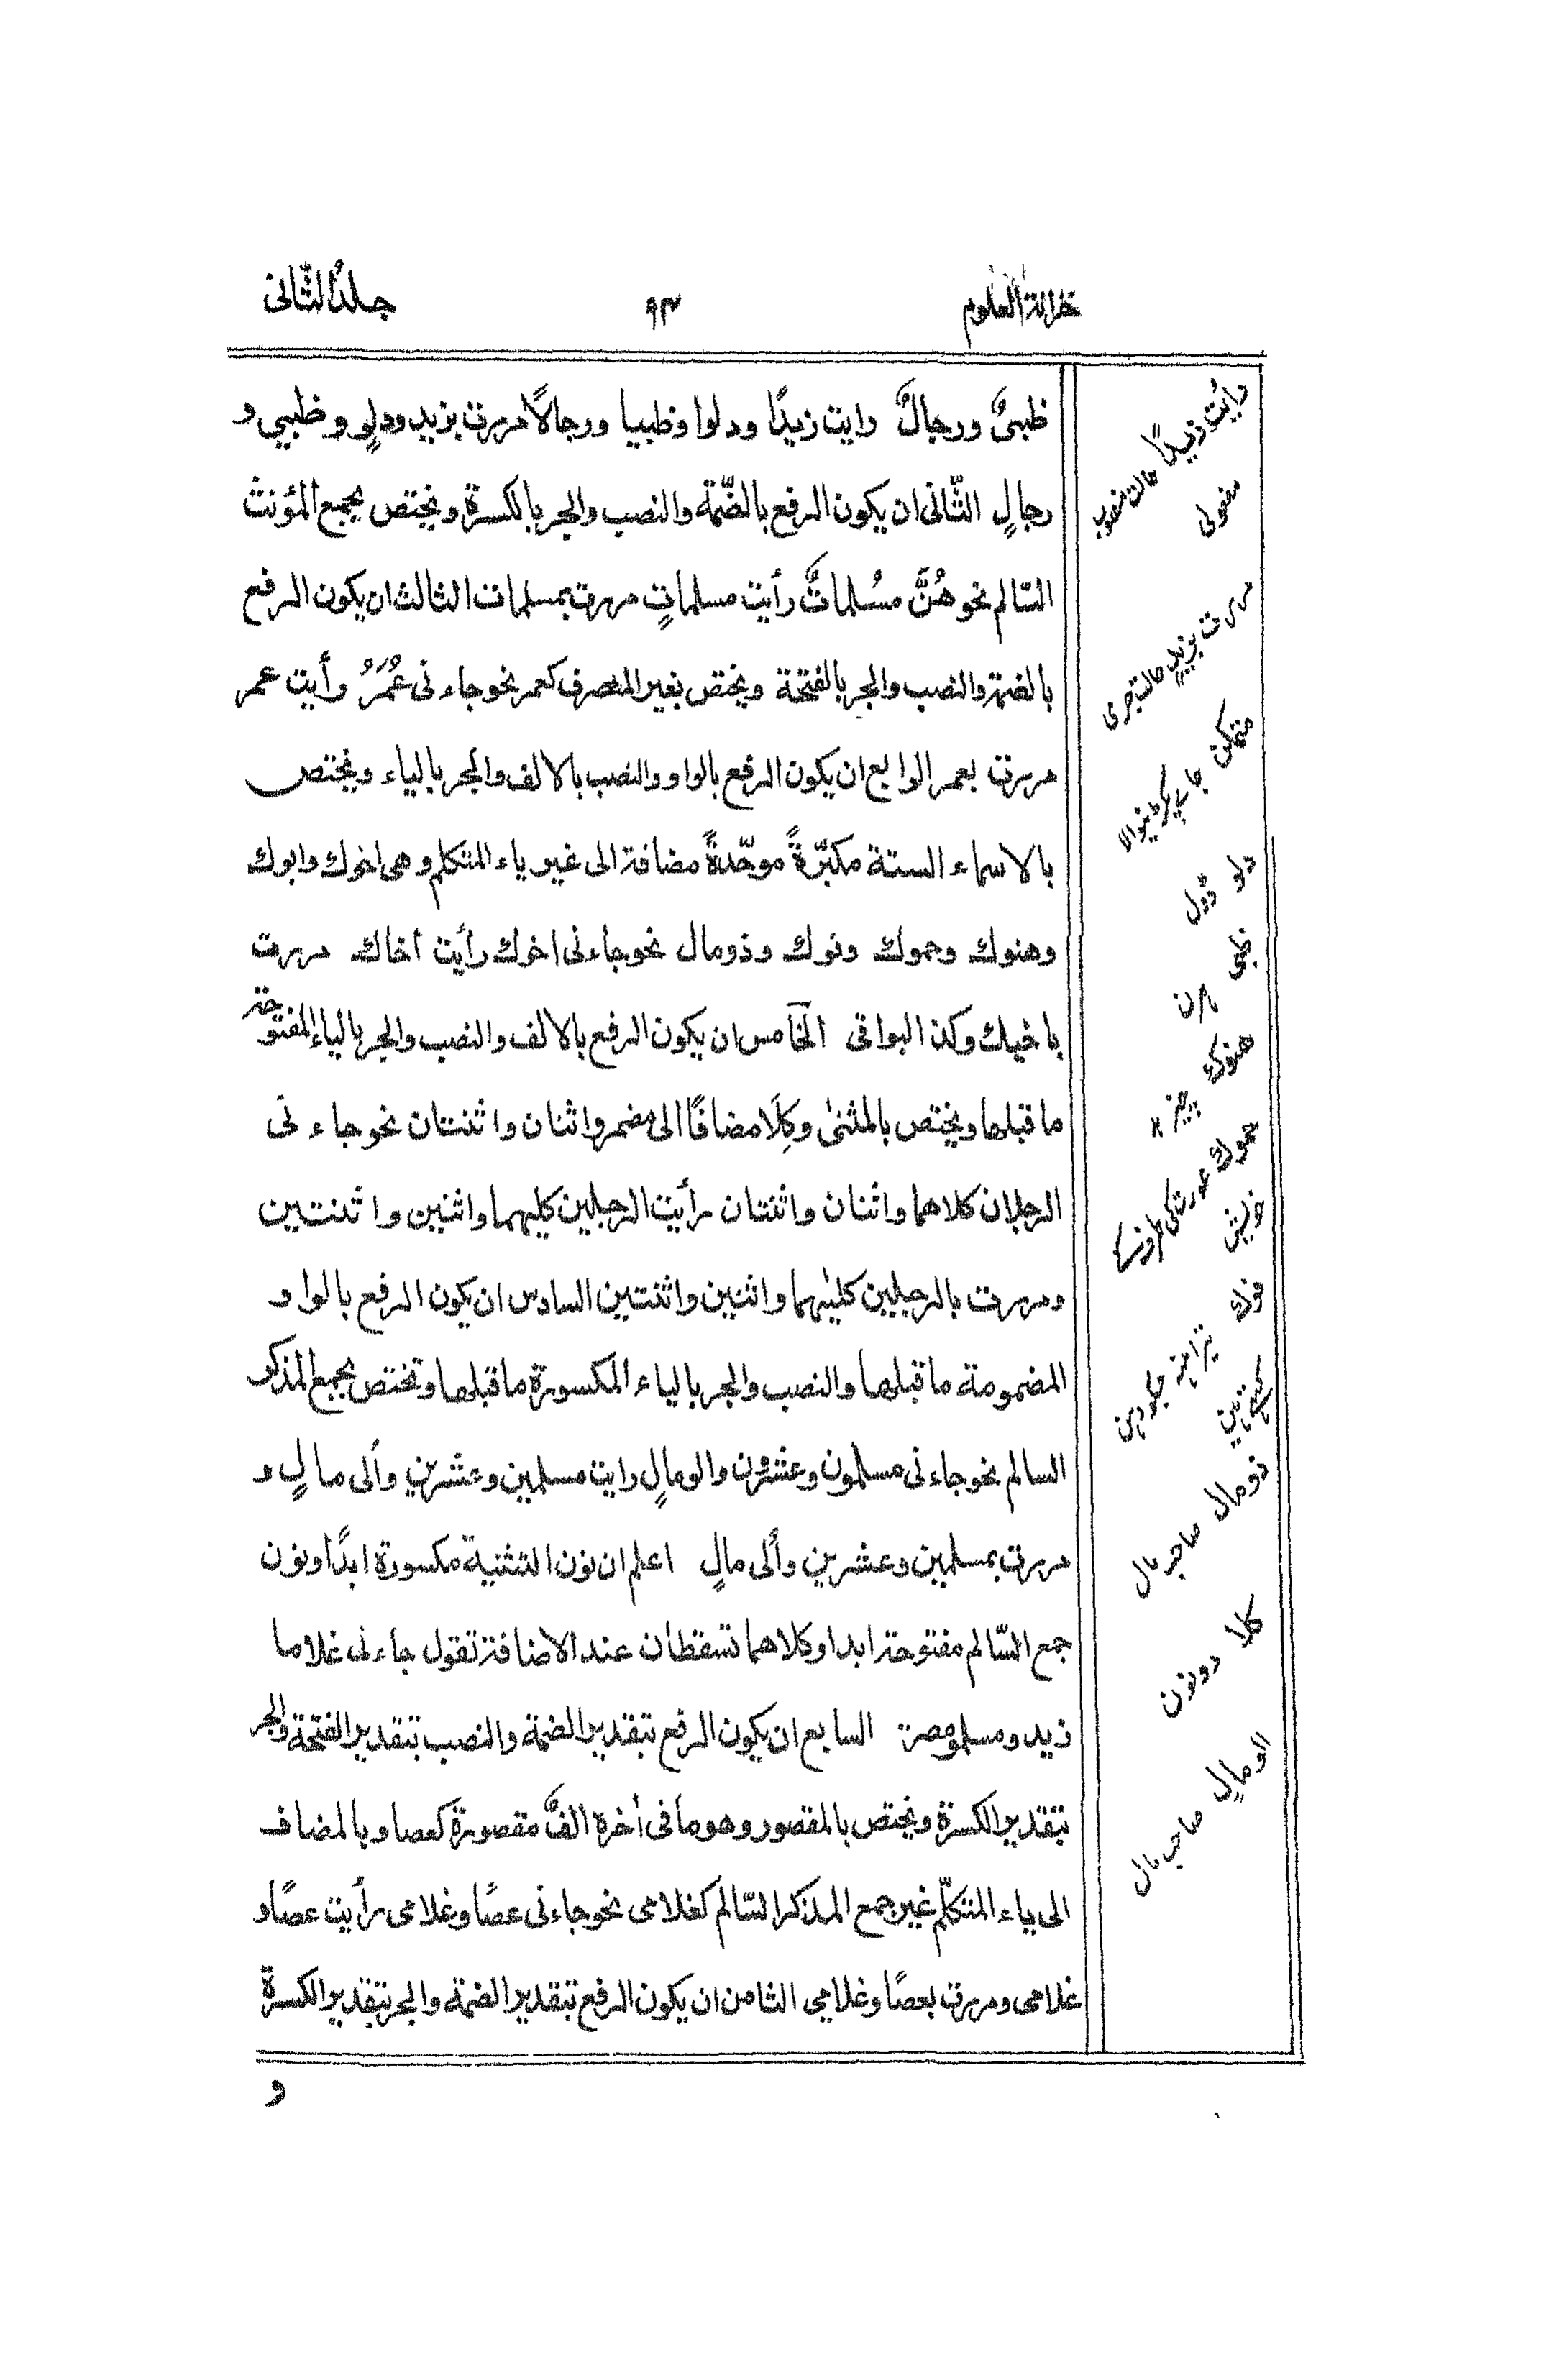 خزانة العلوم
٩٣
جلدُ الثّانى
ظبىٌ ورجالٌ رايت زيدًا ودلوا وظبيا ورجالًا مررت بزيد ودلوٍ وظبي و
رجالٍ الثّانى ان يكون الرفع بالضّمة والنصب والجر بالكسرة ويختص بجمع المؤنث
السّالم نحو هُنَّ مسُلماتٌ رأيت مسلماتٍ مررت بمسلمات الثالث ان يكون الرفع
بالضمة والنصب والجر بالفتحة ويختص بغير المنصرف كعمر نحو جاءنى عُمَرُ رأيت عمر
مررت بعمر الرابع ان يكون الرفع بالواو والنصب بالالف والجر بالياء ويختص
بالاسماء الستة مكبّرةً موحّدةً مضافة الى غير ياء المتكلم وهى اخوك وابوك
وهنوك وحموك وفوك وذومال نحو جاءنى اخوك رأيت أخاك مررت
باخيك وكذا البواقى الخامس ان يكون الرفع بالالف والنصب والجر بالياء المفتوحة
ماقبلها ويختص بالمثنىٰ وكِلَا مضافًا الى مضمر واثنان واثنتان نحو جاء نى
الرجلان كلاهما واثنان واثنتان رأيت الرجلين كليهما واثنين واثنتين
ومررت بالرجلين كليهما واثنين واثنتين السادس ان يكون الرفع بالواو
المضمومة ماقبلها والنصب والجر بالياء المكسورة ماقبلها وتختص بجمع المذكر
السالم نحو جاءنى مسلمون وعشرون والومالٍ رايت مسلمين وعشرين وألى مالٍ و
مررت بمسلمين وعشرين وألى مالٍ اعلم ان نون التثنية مكسورة ابدًا ونون
جمع السّالم مفتوحة ابدا وكلاهما تسقطان عند الاضافة تقول جاءنى غلاما
زيد ومسلمو مصر السابع ان يكون الرفع بتقدير الضمة والنصب بتقدير الفتحة والجر
بتقدير الكسرة ويختص بالمقصور وهو ما فى أخره الفٌ مقصورة كعصا وبالمضاف
الى ياء المتكلّم غير جمع المذكر السّالم كغلامى نحو جاءنى عصًا وغلامى رأيت عصًا و
غلامى ومررت بعصًا وغلامي الثامن ان يكون الرفع بتقدير الضمة والجر بتقدير الكسرة
و
رأيت زيدًا حالت منصوب
مفعولى
مررت بزيدٍ حالت جرى
متمكن جاے پکڑنیوالا
دلو ڈول
ظبى ہرن
هنوك چیز
حموك عورت کی طرف کے
خویش
فوك تیرا منہ جسکو دہن
کہتے ہین
ذومال صاحب مال
كلا دونون
الومالٍ صاحب مال